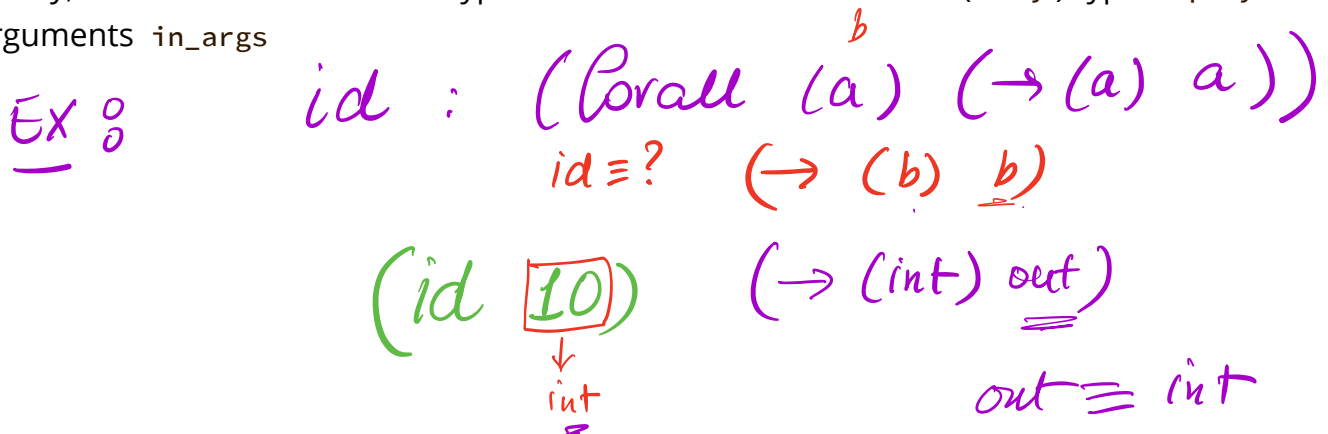 rguments in_args
b
Ex : id : (forall (a) (→ (a) a))
id ≡ ? (→ (b) b)
(id 10) (→ (int) out)
↓
int
out ≡ int